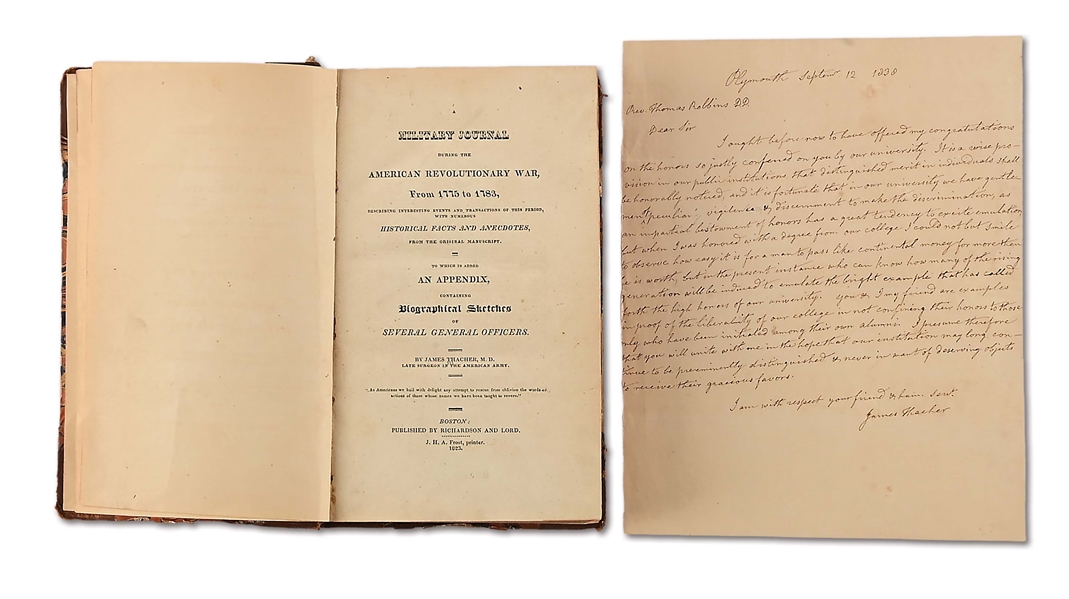 A
MILITARY JOURNAL
DURING THE
AMERICAN REVOLUTIONARY WAR,
From 1775 to 1783,
DESCRIBING INTERESTING EVENTS AND TRANSACTIONS OF THIS PERIOD,
WITH NUMEROUS
HISTORICAL FACTS AND ANECDOTES,
FROM THE ORIGINAL MANUSCRIPT.
TO WHICH IS ADDED
AN APPENDIX,
CONTAINING
Biographical Sketches
OF
SEVERAL GENERAL OFFICERS.
BY JAMES THACHER, M. D.
LATE SURGEON IN THE AMERICAN ARMY.
"As Americans we hail with delight any attempt to rescue from oblivion the words of
actions of those whose names we have been taught to revere."
BOSTON:
PUBLISHED BY RICHARDSON AND LORD.
J. H. A. Frost, printer.
1823.
Plymouth Septem 12 1838
Rev. Thomas Robbins DD.
Dear Sir
I ought before now to have offered my congratulations
on the honors so justly conferred on you by our university. It is a wise pro-
vision in our public institutions, that distinguished merit in individuals shall
be honorably noticed, and it is fortunate that in our university we have gentle
men peculiar; vigilence & discernment to make the discrimination, as
an impartial bestowment of honors has a great tendency to excite emulation
but when I was honored with a degree from our college I could not but smile
to observe how easy it is for a man to pass like continental money for more than
he is worth, but in the present instance who can know how many of the rising
generation will be induced to emulate the bright example that has called
forth the high honors of our university. you & I my friend are examples
in proof of the liberality of our college in not confining their honors to those
only who have been initiated among their own alumni. I presume therefore
that you will unite with me in the hope that our institution may long con-
tinue to be preeminently distinguished & never in want of deserving objects
to receive their gracious favors.
I am with respect your friend & hum. Servt.
James Thacher